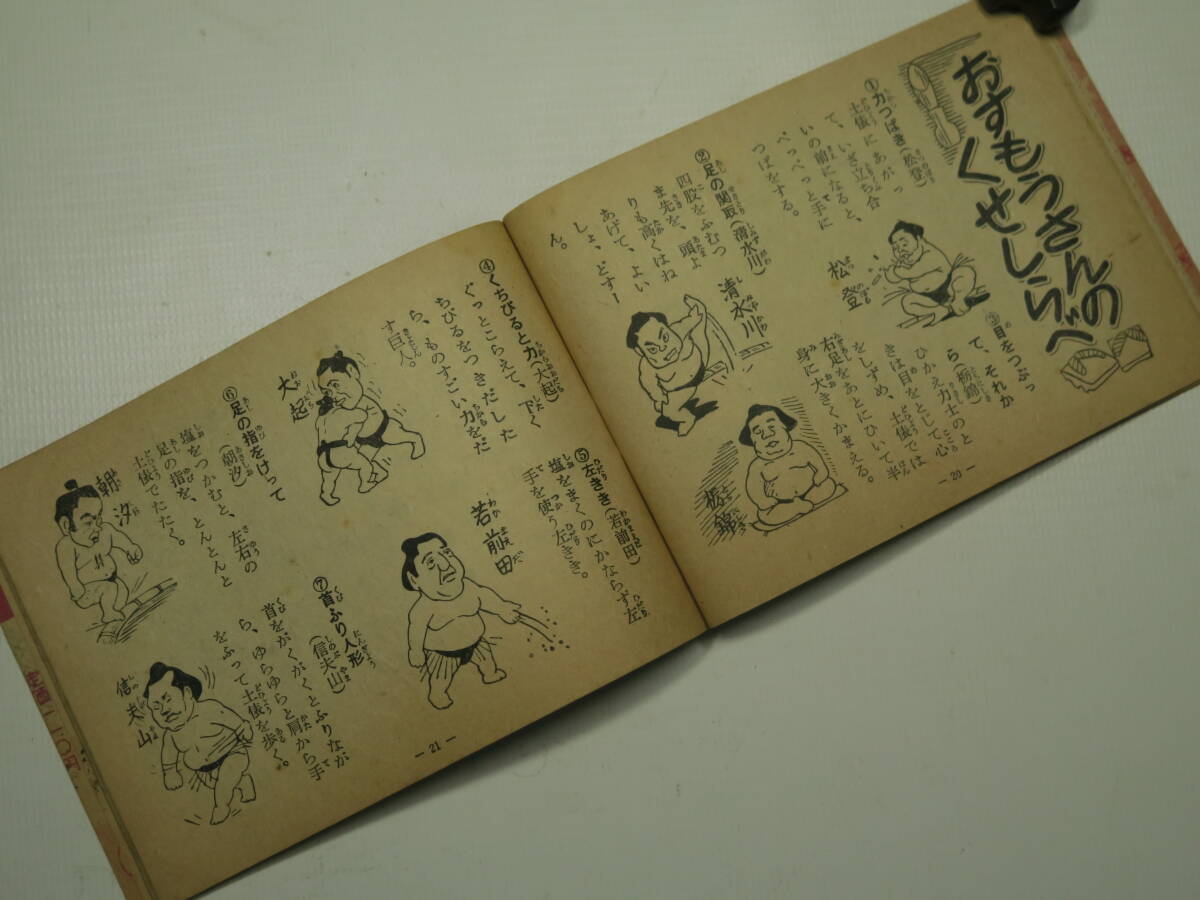 おすもうさんの
くせしらべ
①力つばき(松登)
土俵にあがっ
て、いざ立ち合
いの前になると、
ぺっぺっと手に
つばをする。
松登
②足の関取(清水川)
四股をふむつ
ま先を、頭よ
りも高くはね
あげて、よい
しょ、どすー
ん。
清水川
③目をつぶっ
て、それか
ら(栃錦)
ひかえ力士のと
きは目をとじて心
をしずめ、土俵では
右足をあとにひいて半
身に大きくかまえる。
栃錦
― 20 ―
④くちびると力(大起)
ぐっとこらえて、下く
ちびるをつきだした
ら、ものすごい力をだ
す巨人。
大起
⑤左きき(若前田)
塩をまくのにかならず左
手を使う左きき。
若前田
⑥足の指をけって
(朝汐)
塩をつかむと、左右の
足の指を、とんとんと
土俵でたたく。
朝汐
⑦首ふり人形
(信夫山)
首をがくがくとふりなが
ら、ゆらゆらと肩から手
をふって土俵を歩く。
信夫山
― 21 ―